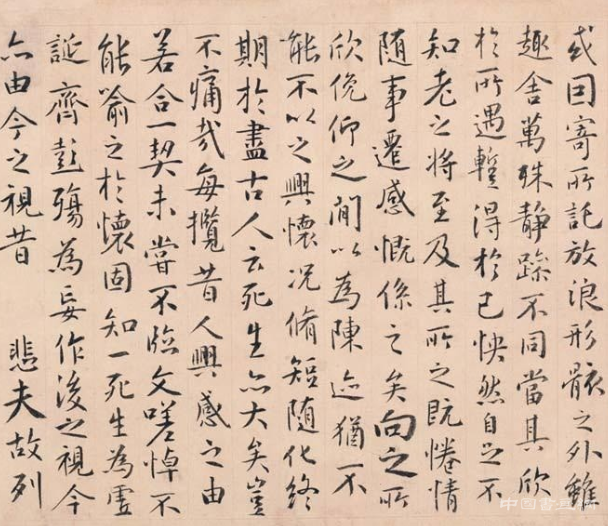 或因寄所託放浪形骸之外雖
趣舍萬殊静躁不同當其欣
於所遇蹔得於己怏然自足不
知老之將至及其所之既惓情
随事遷感慨係之矣向之所
欣俛仰之間以為陳迹猶不
能不以之興懷况脩短随化終
期於盡古人云死生亦大矣豈
不痛哉每攬昔人興感之由
若合一契未嘗不臨文嗟悼不
能喻之於懷固知一死生為虚
誕齊彭殤為妄作後之視今
亦由今之視昔 悲夫故列